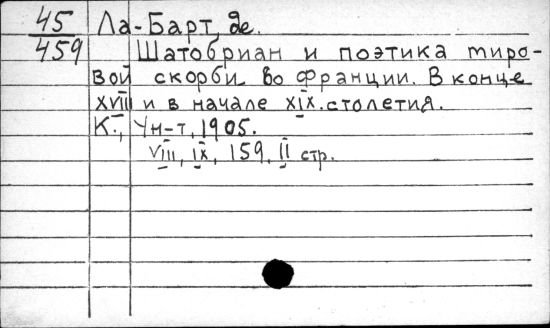 45 Ла-Барт де.
459 Шатобриан и поэтика миро-
вой скорби во Франции. В конце
XVIII и в начале XIX. столетия.
К., Ун-т, 1905.
VIII, IX, 159, II стр.